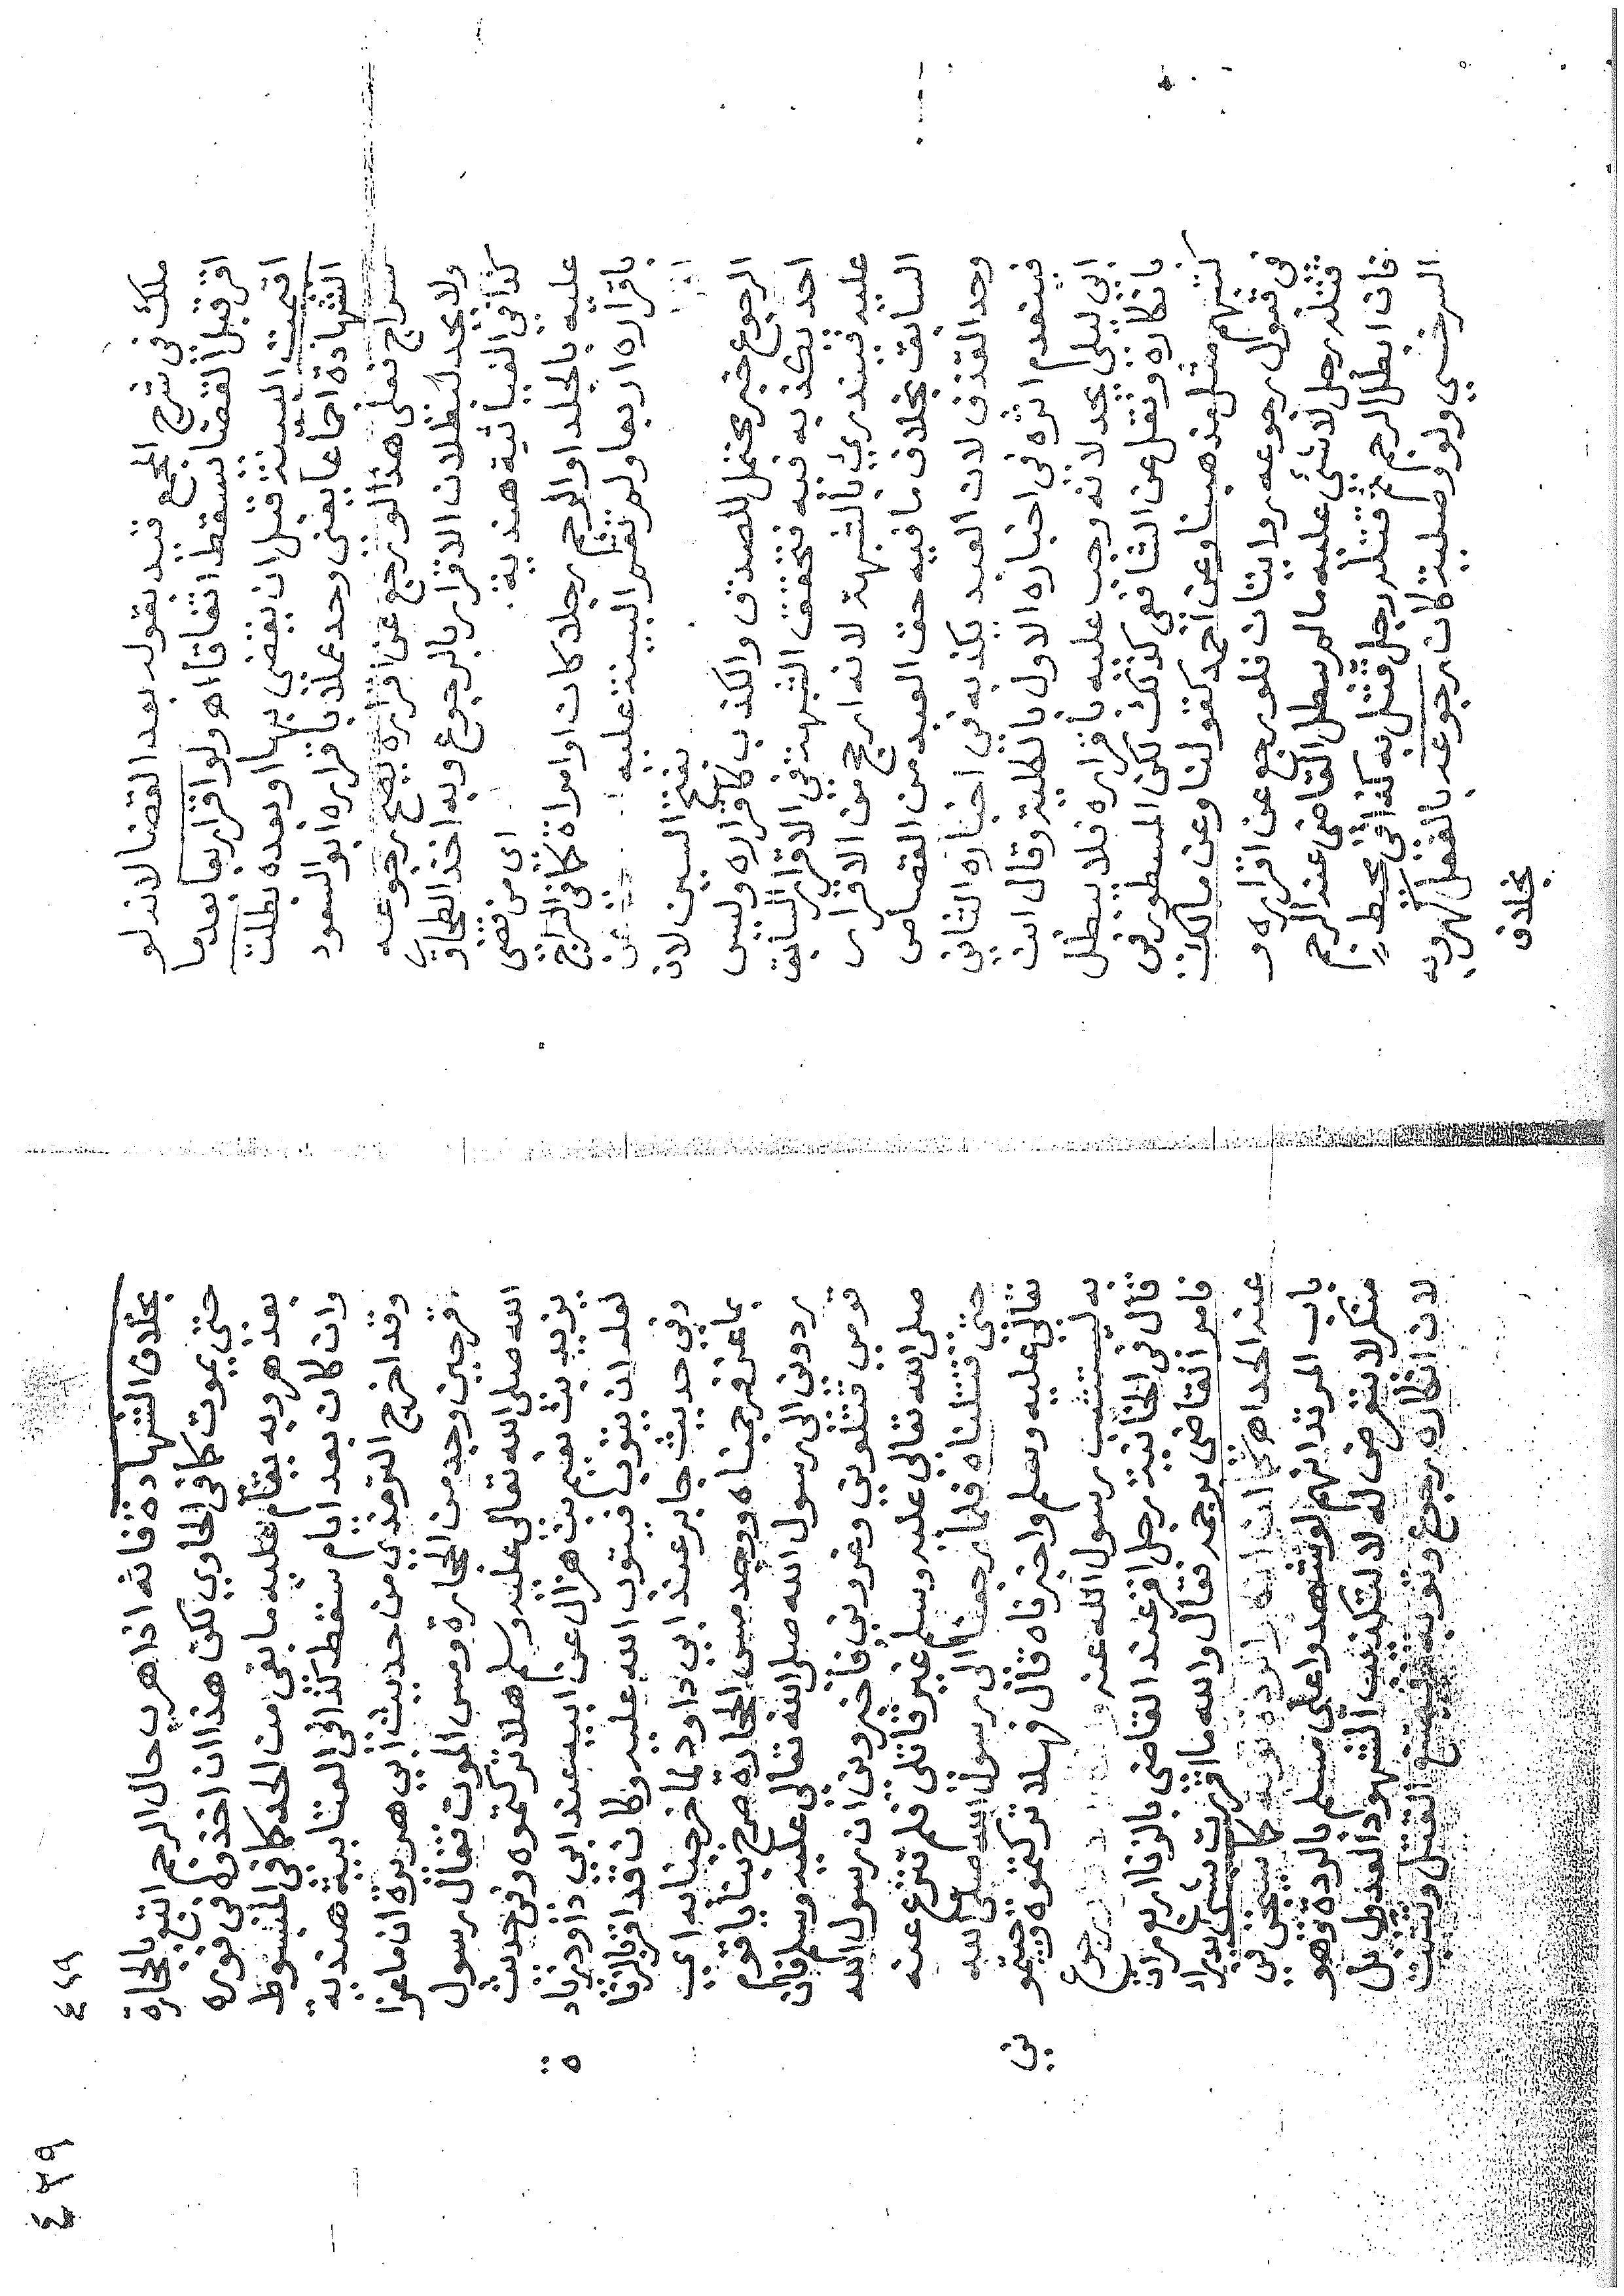 ملك في شرح المجمع قيد بقوله بعد القضا لانه لو
اقر قبل القضا يسقط اتفاقا اه ولو اقر اربعا بعد ما
اقيمت البينة قبل ان يقضى بها او بعده بطلت
الشهادة اجماعا يعنى وحد عملا باقراره ابو السعود
سراج فعلى هذا لو رجع عن اقراره يصح رجوعه
ولا يحد لبطلان الاقرار بالرجوع وبه اخذ الطحاوي
كذا في الغياثية هندية
اى من قضى
عليه بالجلد او الرجم رجلا كان او امراة كما في السراج
باقراره اربعا ولم تقم البينة عليه
بفتح السين لان
الرجوع خبر يحتمل للصدق والكذب كاقراره وليس
احد يكذبه فيه فتحقق الشبهة في الاقرار السابق
عليه فيندرئ بالشبهة لانه ارجح من الاقرار
السابق بخلاف ما فيه حق العبد من القصاص
وحد القذف لان العبد يكذبه في اخباره الثاني
فينعدم اثره في اخباره الاول بالكلية وقال ابن
ابي ليلى يحد لانه وجب عليه باقراره فلا يبطل
بانكاره ونقل عن الشافعي كذلك لكن المسطور في
كتبهم مثل مذهبنا وعن احمد كقولنا وعن مالك
في قبول رجوعه روايتان فلو رجع عن اقراره و
قتله رجل لا شئ عليه ما لم يبطل القاضى عنه الرجم
فان ابطل الرجم ثم قتله رجل قتل به كذا في محيط
السرخسي ولو اصلية كان رجوعه بالفعل كهروبه
بخلاف
٤٦٩
٤٦٩
بخلاف الشهادة فانه اذا هرب حال الرجم اتبع بالحجارة
حتى يموت كما في الحاوي لكن هذا ان اخذوه في فوره
بعد هروبه يقام عليه ما بقى من الحد كما في المبسوط
وان كان بعد ايام سقط كذا في العتابية هندية
وقد اخرج الترمذي من حديث ابي هريرة ان ماعزا
فر حين وجد من الحجارة ومس الموت فقال رسول
الله صلى الله تعالى عليه وسلم هلا تركتموه وفي حديث
يزيد بن نعيم بن هزال عن ابيه عند ابي داود زياد
ة
لعله ان يتوب فيتوب الله عليه وكان قد اقر بالزنا
وفي حديث جابر عند ابي داود لما خرجنا به اي
بماعز فرجمناه ووجد مس الحجارة صرخ بنا يا قوم
ردوني الى رسول الله صلى الله تعالى عليه وسلم فان
قومي قتلوني وغروني فاخبروني ان رسول الله
صلى الله تعالى عليه وسلم غير قاتلى فلم ننزع عنه
حتى قتلناه فلما رجعنا الى رسول الله صلى الله
تعالى عليه وسلم واخبرناه قال فهلا تركتموه وجيتمو
ني
به ليستثبت رسول الله عنه رجوع
قال في الخانية رجل اقر عند القاضى بالزنا اربع مرات
فامر القاضى برجمه فقال والله ما اقررت بشئ يدرا
عنه الحد اه كما ان انكار الردة توبة كما سيجئ في
باب المرتد انهم لو شهدوا على مسلم بالردة وهو
منكر لا يتعرض له لا لتكذيب الشهود العدول بل
لان انكاره رجوع وتوبة فيمتنع القتل وتثبت